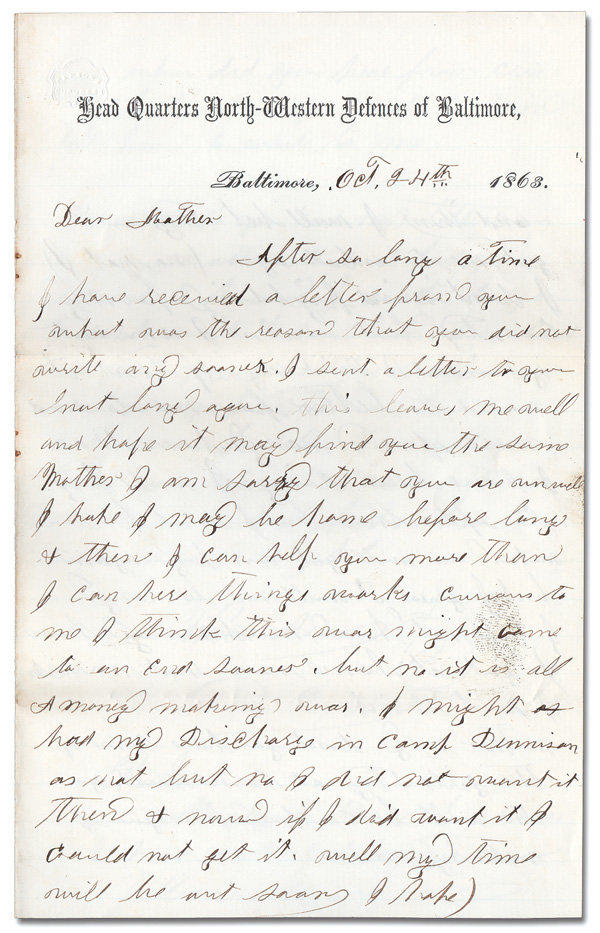 Head Quarters North-Western Defences of Baltimore,
Baltimore, Oct, 24th 1863.
Dear Mother
After so long a time
I have received a letter from you
what was the reason that you did not
write any sooner. I sent a letter to you
not long agou. this leaves me well
and hope it may find you the same
Mother I am sorry that you are unwell
I hope I may be home before long
& then I can help you more than
I can her things works curious to
me I think this war might come
to an End sooner. but no it is all
A money making war. I might
had my Discharge in Camp Dennison
as not but no I did not want it
then & now if I did want it I
Could not get it. well my time
will be out soon I hope)